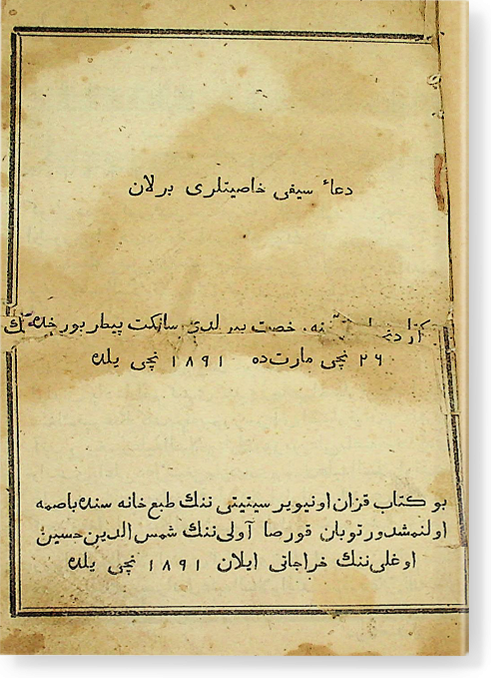 دعاﺀ سیفی خاصیتلری برلان
رخصت بیرلدی سانکت پیطار بورخده
۲۶ نچی مارت‌ده ۱۸۹۱ نچی یلده
بو کتاب قزان اونیویرسیتیتی ننك طبع خانه سنده باصمه
اولنمشدور توبان قورصا آولی ننك شمس الدین حسین
اوغلی ننك خراجاتی ایلان ۱۸۹۱ نچی یلده